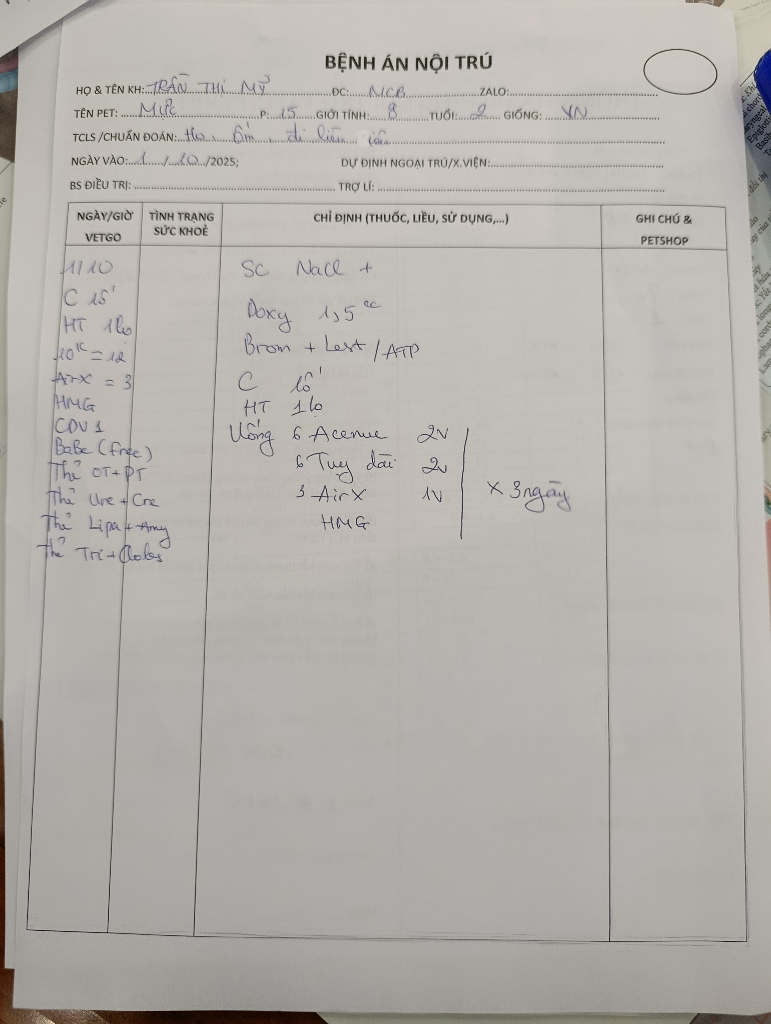 BỆNH ÁN NỘI TRÚ
HỌ & TÊN KH: TRẦN THỊ MỸ ĐC: NCB ZALO:
TÊN PET: MỰC P: 15 GIỚI TÍNH: 8 TUỔI: 2 GIỐNG: VN
TCLS /CHUẨN ĐOÁN: Ho, ốm, đi
NGÀY VÀO: 1 / 10 /2025; DỰ ĐỊNH NGOẠI TRÚ/X.VIỆN:
BS ĐIỀU TRỊ: TRỢ LÍ:
NGÀY/GIỜ VETGO TÌNH TRẠNG SỨC KHOẺ CHỈ ĐỊNH (THUỐC, LIỀU, SỬ DỤNG,...) GHI CHÚ & PETSHOP
1/10
C 15'
HT 1lọ
10k = 12
AirX = 3
HMG
CDV 1
BaBe (free)
Thẻ OT + PT
Thẻ Ure + Cre
Thẻ Lipa + Amy
Thẻ Tri +
SC NaCl +
Doxy 1,5 cc
Brom + Lest / ATP
C 15'
HT 1lọ
Uống 6 Acenue 2v
6 Tuy dãi 2v
3 AirX 1v
HMG
x 3 ngày